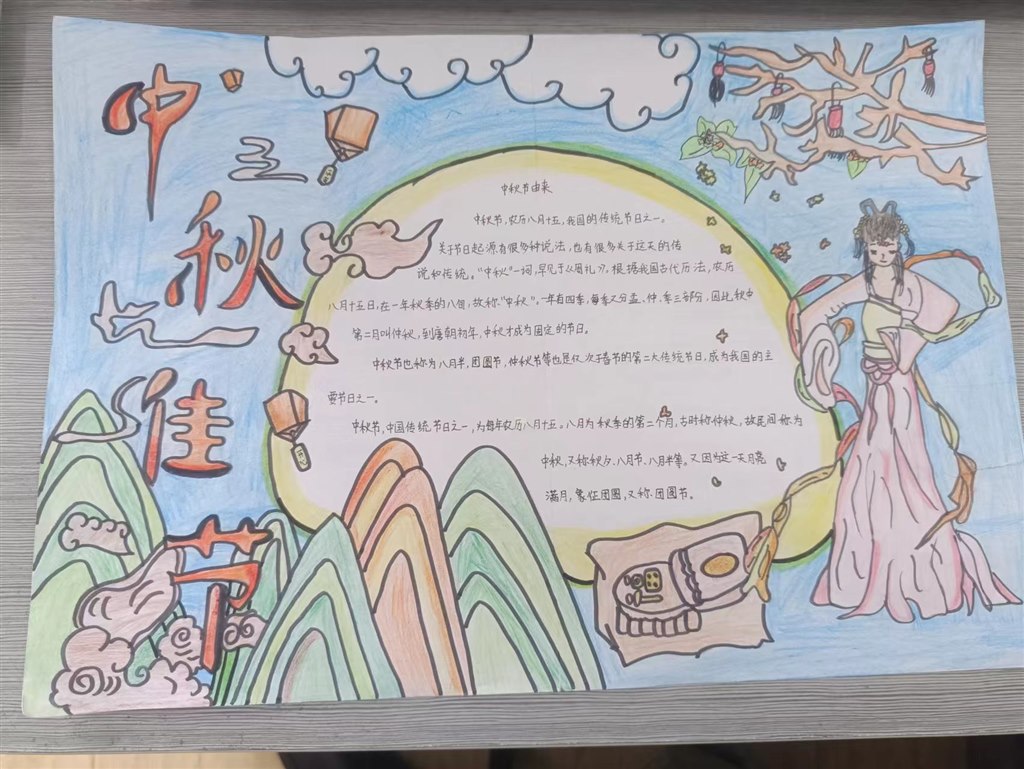 中秋佳节
中秋节由来
中秋节，农历八月十五，我国的传统节日之一。
关于节日起源有很多种说法，也有很多关于这天的传
说和传统。“中秋”一词，早见于《周礼》。根据我国古代历法，农历
八月十五日，在一年秋季的八旬，故称“中秋”。一年有四季，每季又分孟、仲、季三部分，因此秋中
第二月叫仲秋，到唐朝初年，中秋才成为固定的节日。
中秋节也称为八月半，团圆节，仲秋节等也是仅次于春节的第二大传统节日，成为我国的主
要节日之一。
中秋节，中国传统节日之一，为每年农历八月十五。八月为秋季的第二个月，古时称仲秋，故民间称为
中秋，又称秋夕、八月节、八月半等。又因为这一天月亮
满月，象征团圆，又称团圆节。